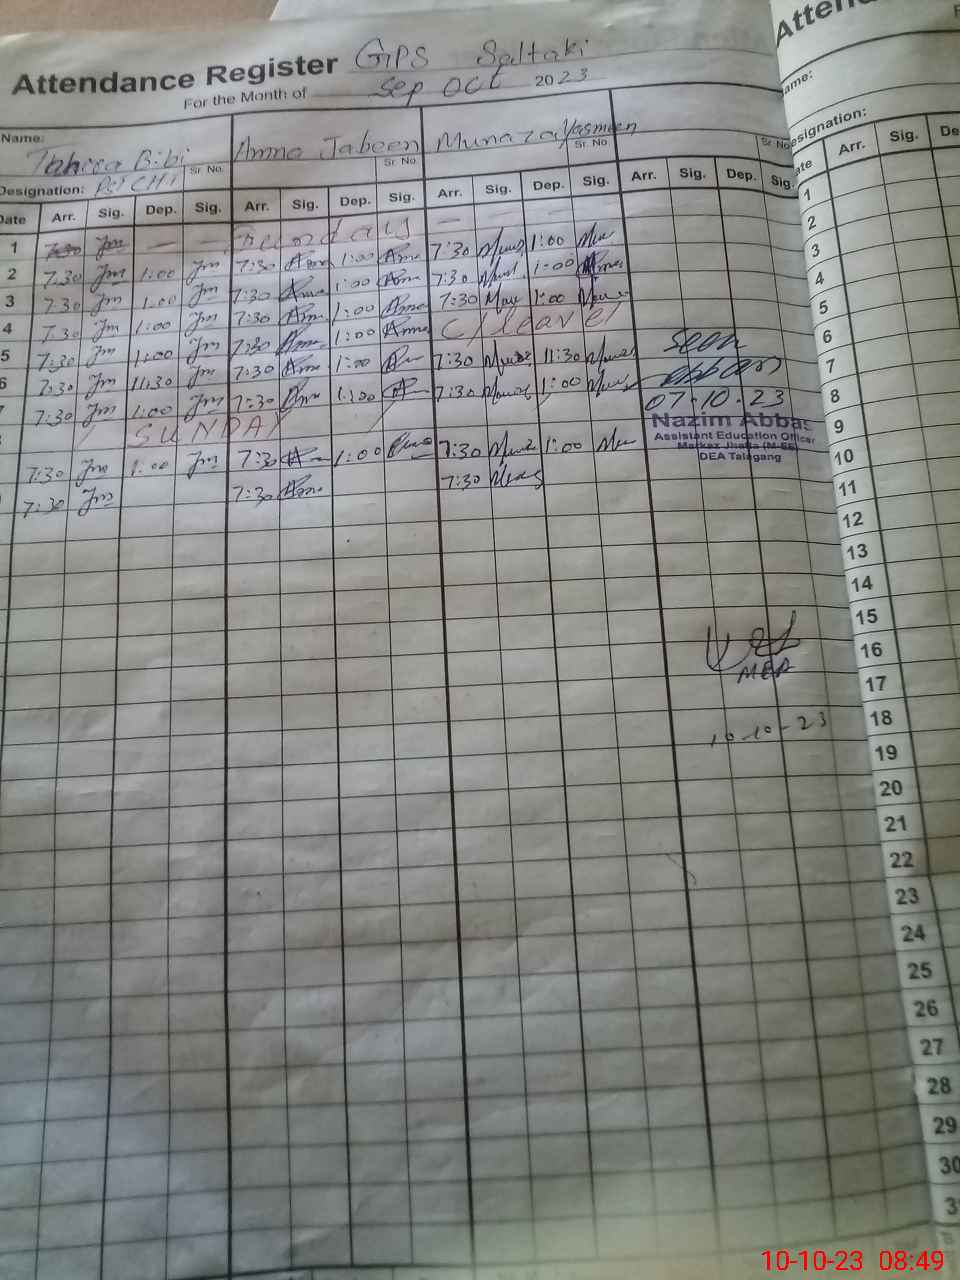 Attendance Register GPS Saltaki
For the Month of Sep Oct 2023
Name: Tahira Bibi Amna Jabeen Munaza Yasmeen
Sr. No. Sr. No. Sr. No. Sr No
Designation:
Date Arr. Sig. Dep. Sig. Arr. Sig. Dep. Sig. Arr. Sig. Dep. Sig. Arr. Sig. Dep. Sig.
1 7:30 Jm — —
2 7:30 Jm 1:00 Jm 7:30 Amn 1:00 Amn 7:30 1:00
3 7:30 Jm 1:00 Jm 7:30 Amn 1:00 Amn 7:30 1:00
4 7:30 Jm 1:00 Jm 7:30 Amn 1:00 Amn 7:30 1:00
5 7:30 Jm 1:00 Jm 7:30 Amn 1:00 Amn C/leave
6 7:30 Jm 11:30 Jm 7:30 Amn 1:00 7:30 11:30
7:30 Jm 1:00 Jm 7:30 Amn 1:00 7:30 1:00
SUNDAY
7:30 Jm 1:00 Jm 7:30 1:00 7:30 1:00
7:30 Jm 7:30 Amn 7:30
Seen
07-10-23
Nazim Abbas
Assistant Education Officer
Markaz Jhatla (M-EE)
DEA Talagang
MEA
10-10-23
Atten
ame:
esignation:
ate Arr. Sig. De
1
2
3
4
5
6
7
8
9
10
11
12
13
14
15
16
17
18
19
20
21
22
23
24
25
26
27
28
29
30
3
10-10-23 08:49